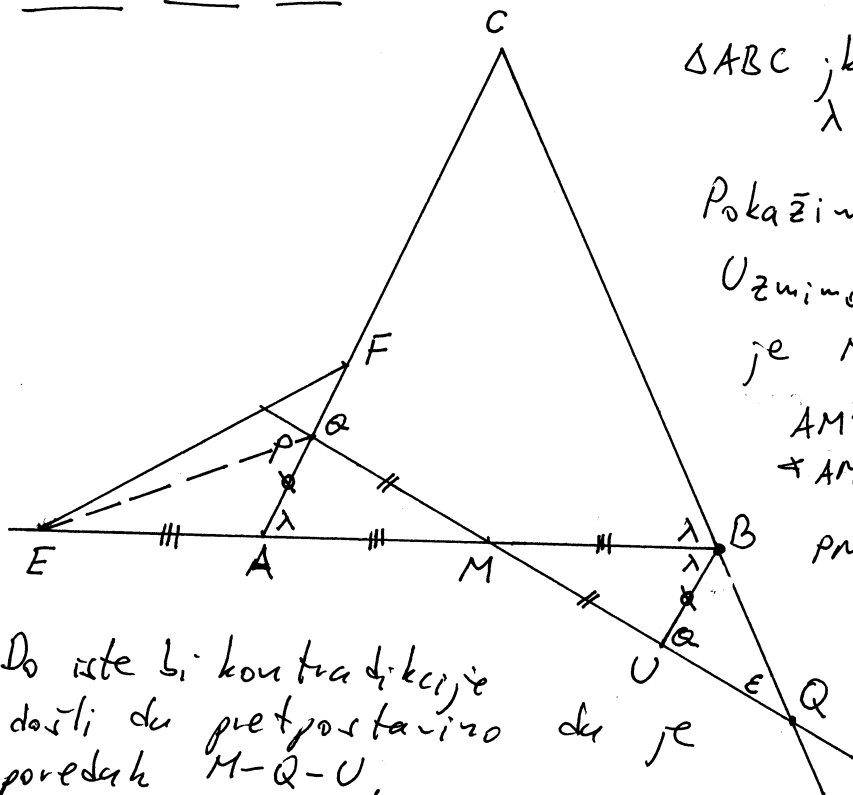 C
ΔABC jk
λ
Pokažim
Uzmimo
je M
F
Q
P
AM
∢ AM
λ
λ
λ
B
E
A
M
PM
U
Q
ε
Q
Do iste bi kontradikcije
došli da pretpostavimo da je
poredak M-Q-U.